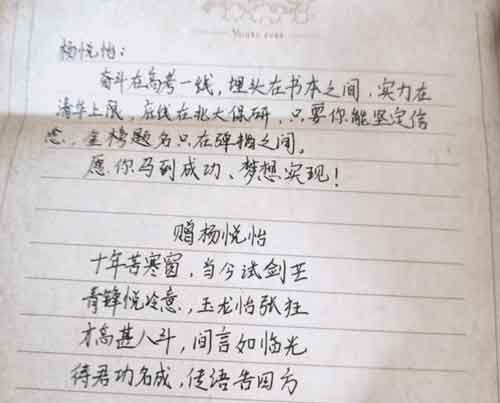 杨悦怡:
奋斗在高考一线,埋头在书本之间,实力在
清华上限,底线在北大保研,只要你能坚定信
念,金榜题名只在弹指之间。
愿你马到成功、梦想实现!
赠杨悦怡
十年苦寒窗,当今试剑芒
青锋悦冷意,玉龙怡张狂
才高甚八斗,闻言如临光
待君功名成,传语告四方